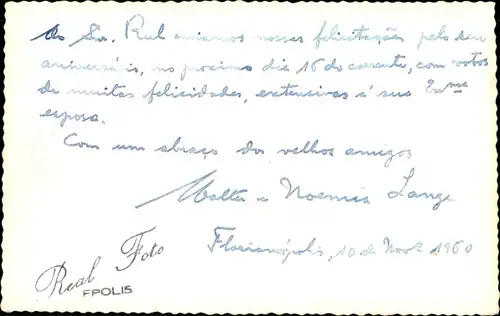 Ao Sr. Rul enviamos nossas felicitações pelo seu
aniversário, no proximo dia 16 do corrente, com votos
de muitas felicidades, extensivas á sua Exma
esposa.
Com um abraço dos velhos amigos
Walter e Noemia Lange
Florianópolis, 10 de Novº 1960
Real Foto
FPOLIS